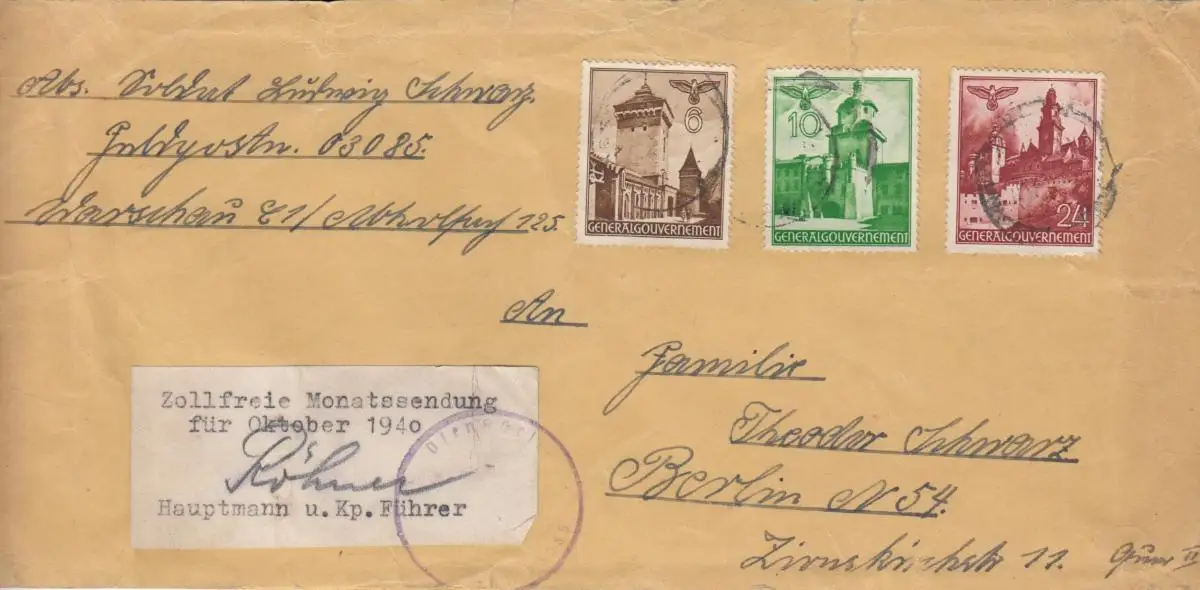 Abs. Soldat Ludwig Schwarz.
Feldpostn. 03085.
Warschau C1/ 125.
6
GENERALGOUVERNEMENT
10
GENERALGOUVERNEMENT
24
GENERALGOUVERNEMENT
An
Familie
Theodor Schwarz
Berlin N 54.
11.
Zollfreie Monatssendung
für Oktober 1940
Röhner
Hauptmann u. Kp. Führer